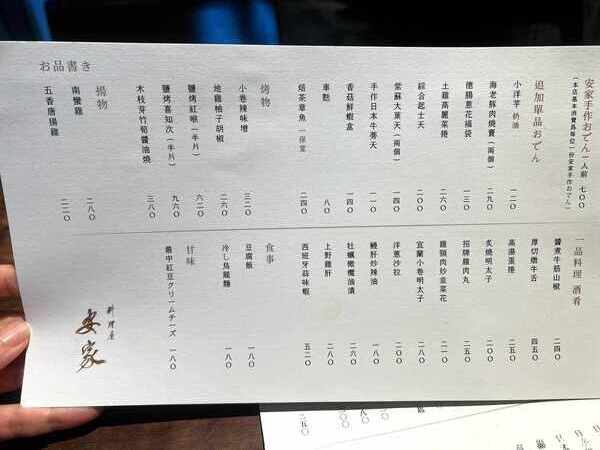 安家手作おでん 一人前 七〇〇
(本店基本消費為每位一份安家手作おでん)
追加單品おでん
小洋芋 奶油 一二〇
海老豚肉燒賣(兩個) 二九〇
德腸蔥花福袋 一三〇
土雞高麗菜捲 二六〇
綜合起士天 二〇〇
紫蘇大葉天(兩個) 一四〇
手作日本牛蒡天 一一〇
香菇鮮蝦盒 一四〇
車麩 八〇
焙茶章魚 一保堂 二四〇
烤物
小卷辣味噌 三二〇
地雞柚子胡椒 二六〇
鹽烤紅喉(半片) 六二〇
鹽烤喜知次(半片) 九六〇
木枝芽竹筍醬油燒 三八〇
揚物
南蠻雞 二八〇
五香唐揚雞 二二〇
お品書き
一品料理 酒肴
醬煮牛筋山椒 二四〇
厚切燉牛舌 四五〇
高湯蛋捲 二五〇
炙燒明太子 二九〇
招牌雞肉丸 二五〇
雞頸肉炒韭菜花 二一〇
宜蘭小卷明太子 二八〇
洋蔥沙拉 二〇〇
雞肝炒辣油 一八〇
牡蠣橄欖油漬 二六〇
上野雞肝 二八〇
西班牙蒜味蝦 五二〇
食事
豆腐飯 一八〇
冷し烏龍麵 一八〇
甘味
最中紅豆クリームチーズ 一八〇
料理屋
安家